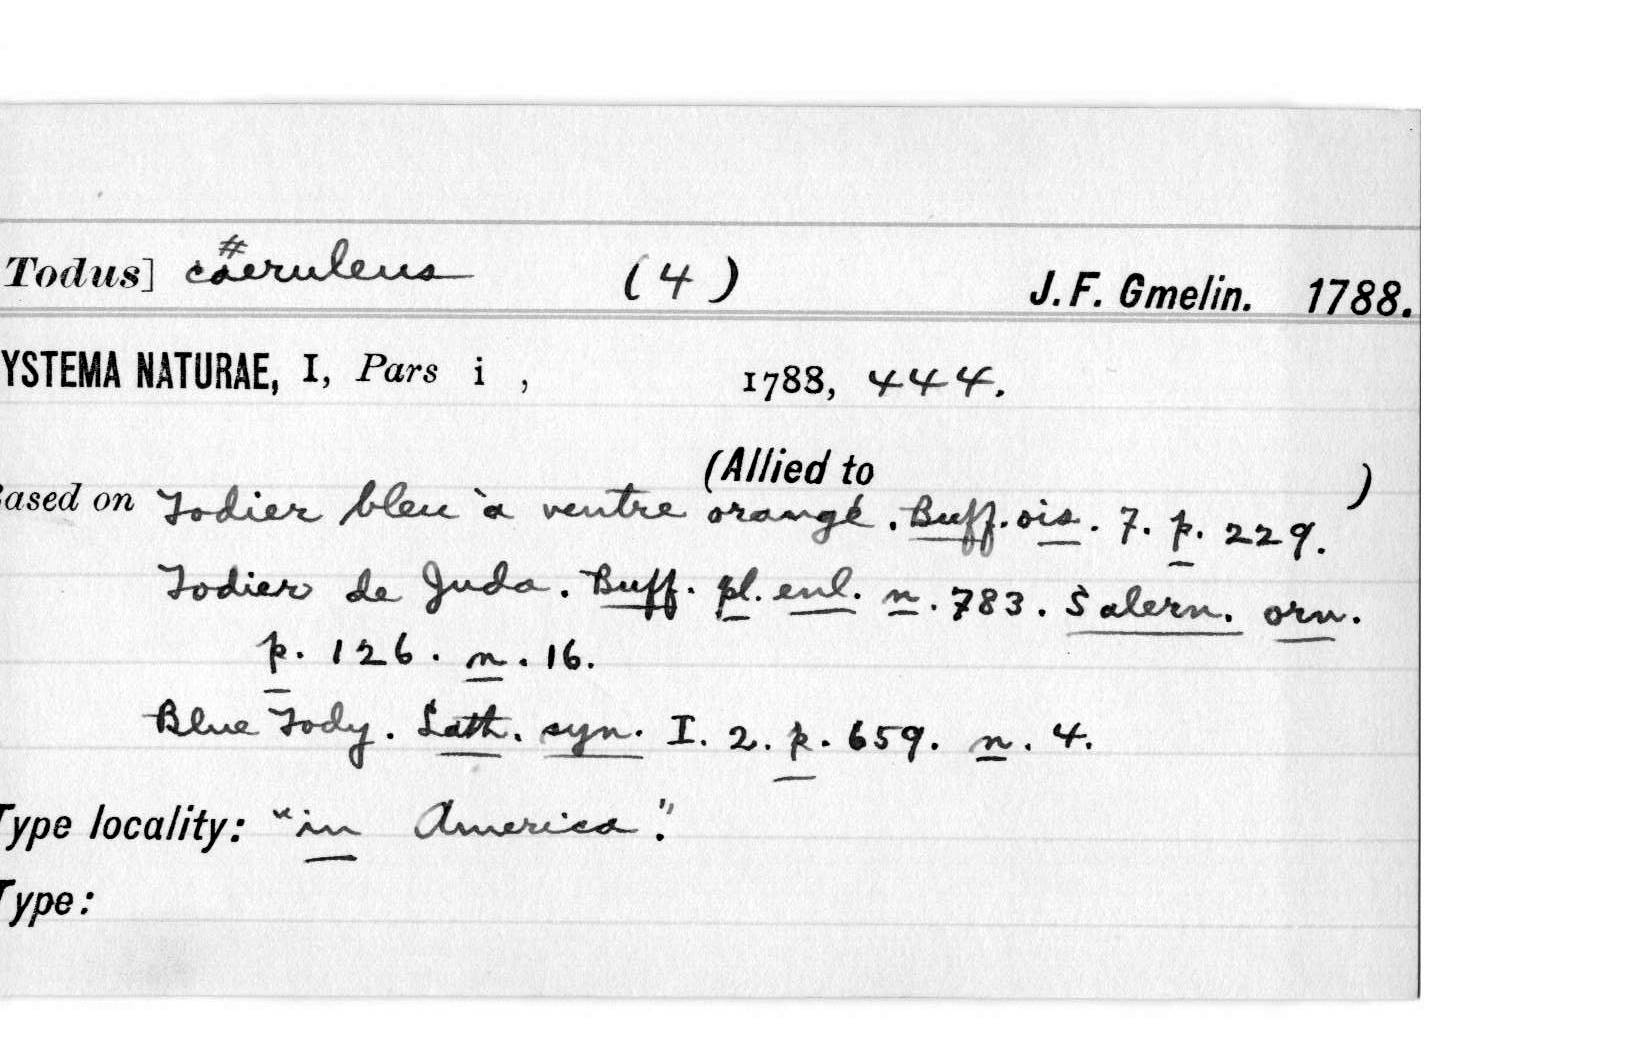 Todus] caeruleus (4) J. F. Gmelin. 1788.
YSTEMA NATURAE, I, Pars i , 1788, 444.
(Allied to )
ased on Todier bleu à ventre orangé. Buff. ois. 7. p. 229.
Todier de Juda. Buff. pl. enl. n. 783. Salern. orn.
p. 126. n. 16.
Blue Tody. Lath. syn. I. 2. p. 659. n. 4.
Type locality: "in America."
Type: